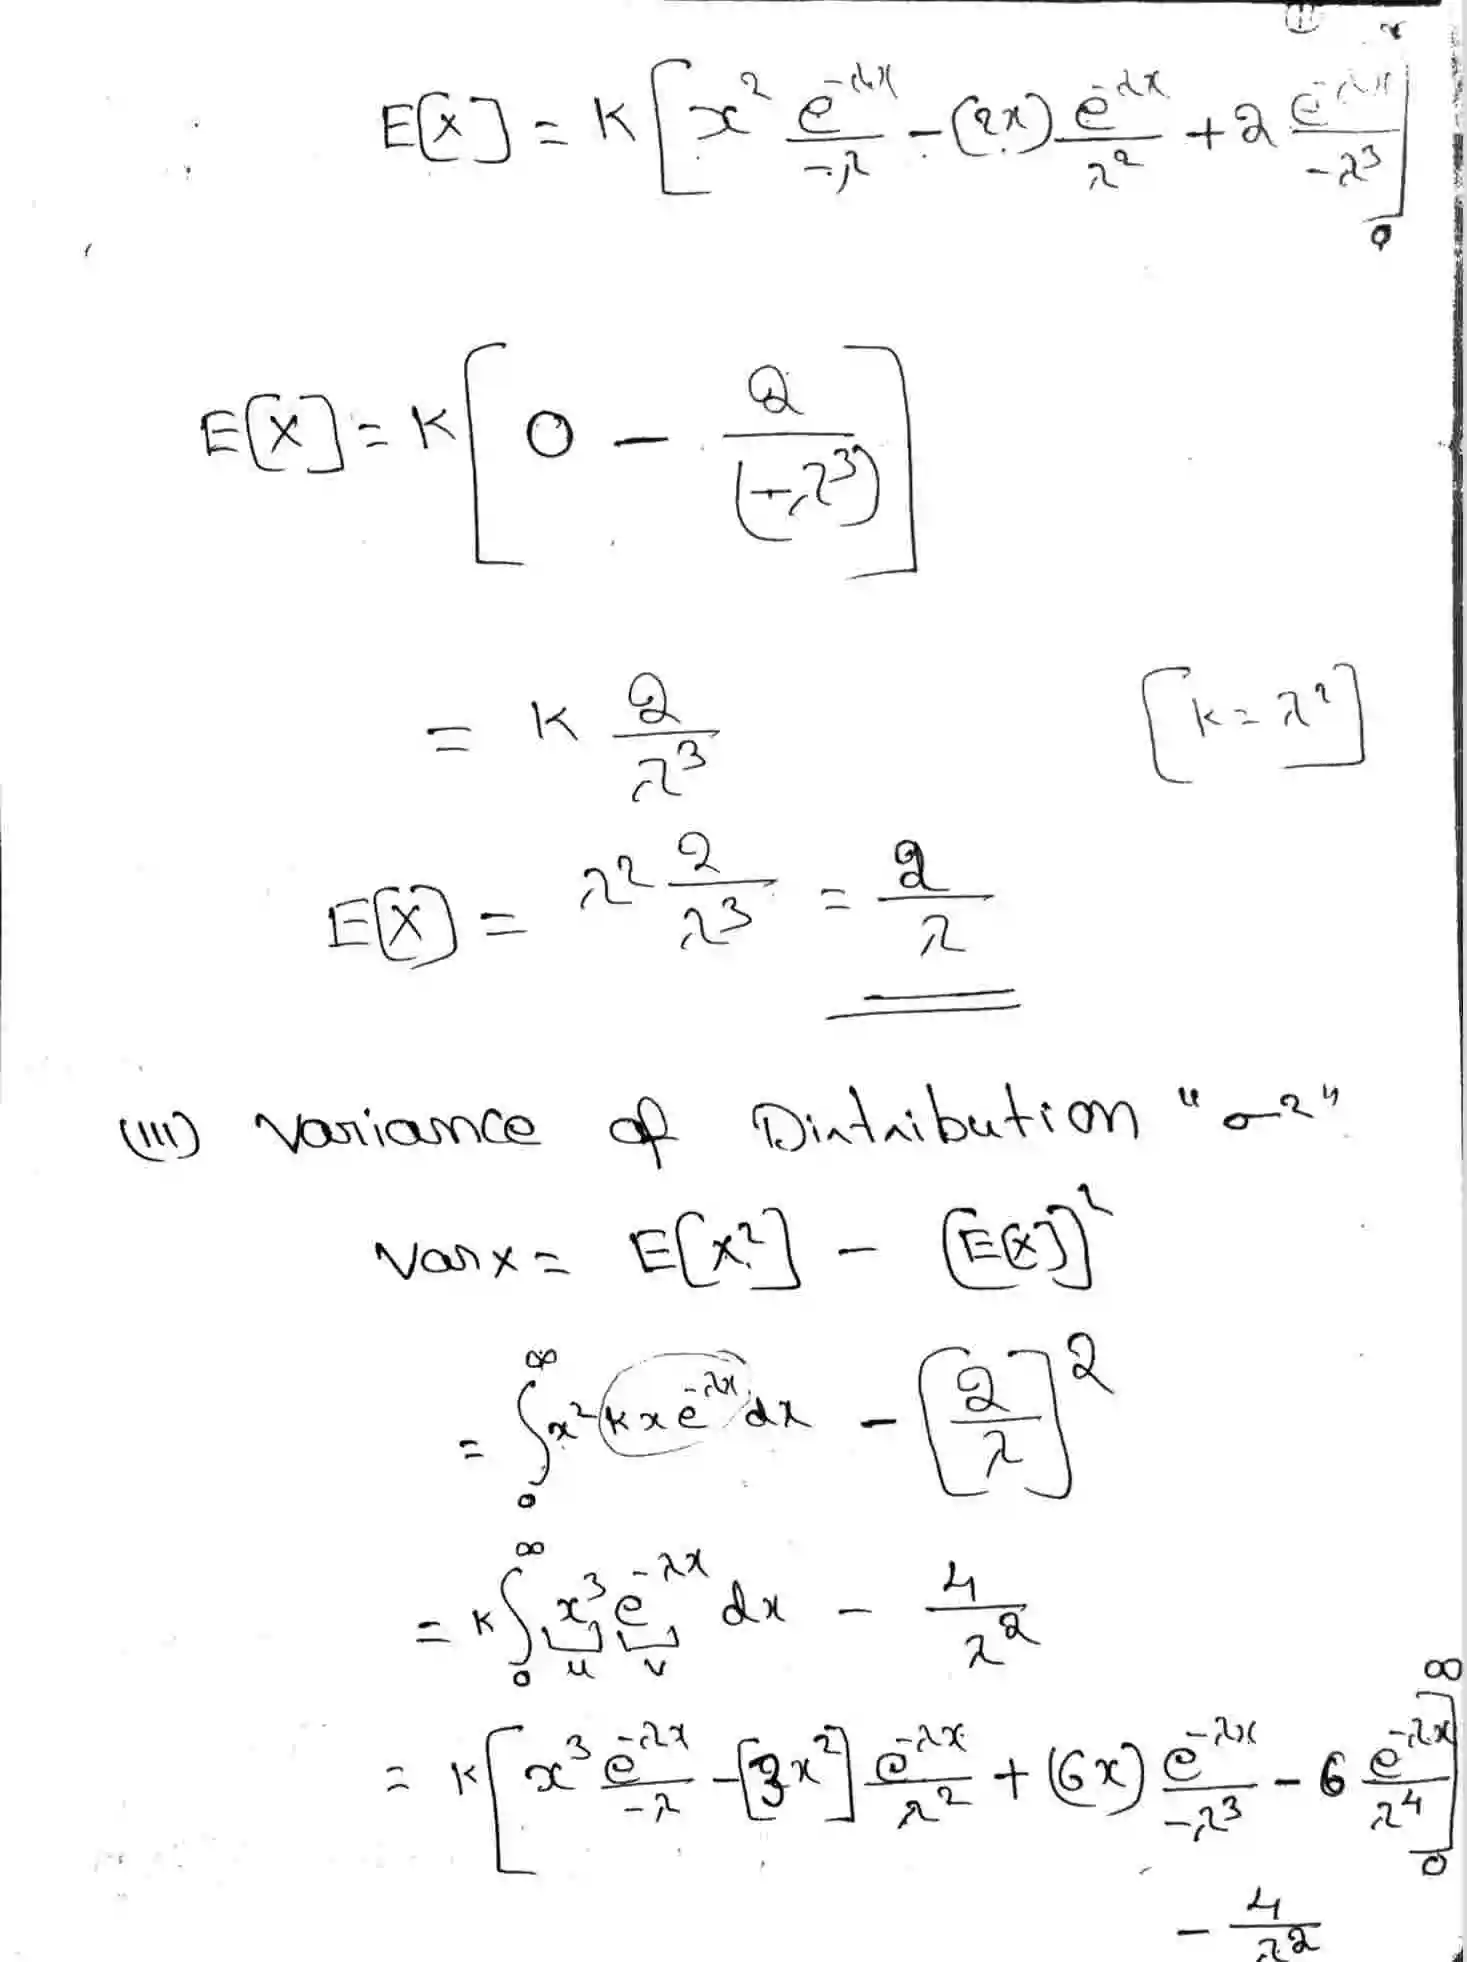 (11)
E[X] = K [ x² e^{-λx}/-λ - (2x) e^{-λx}/λ² + 2 e^{-λx}/-λ³ ]_0
E[X] = K [ 0 - 2/(-λ³) ]
= K 2/λ³ [K = λ²]
E[X] = λ² 2/λ³ = 2/λ
(III) Variance of Distribution "σ²"
Var X = E[X²] - [E[X]]²
= ∫_0^∞ x² K x e^{-λx} dx - [2/λ]²
= K ∫_0^∞ x³ e^{-λx} dx - 4/λ²
u v
= K [ x³ e^{-λx}/-λ - [3x²] e^{-λx}/λ² + (6x) e^{-λx}/-λ³ - 6 e^{-λx}/λ⁴ ]_0^∞
- 4/λ²